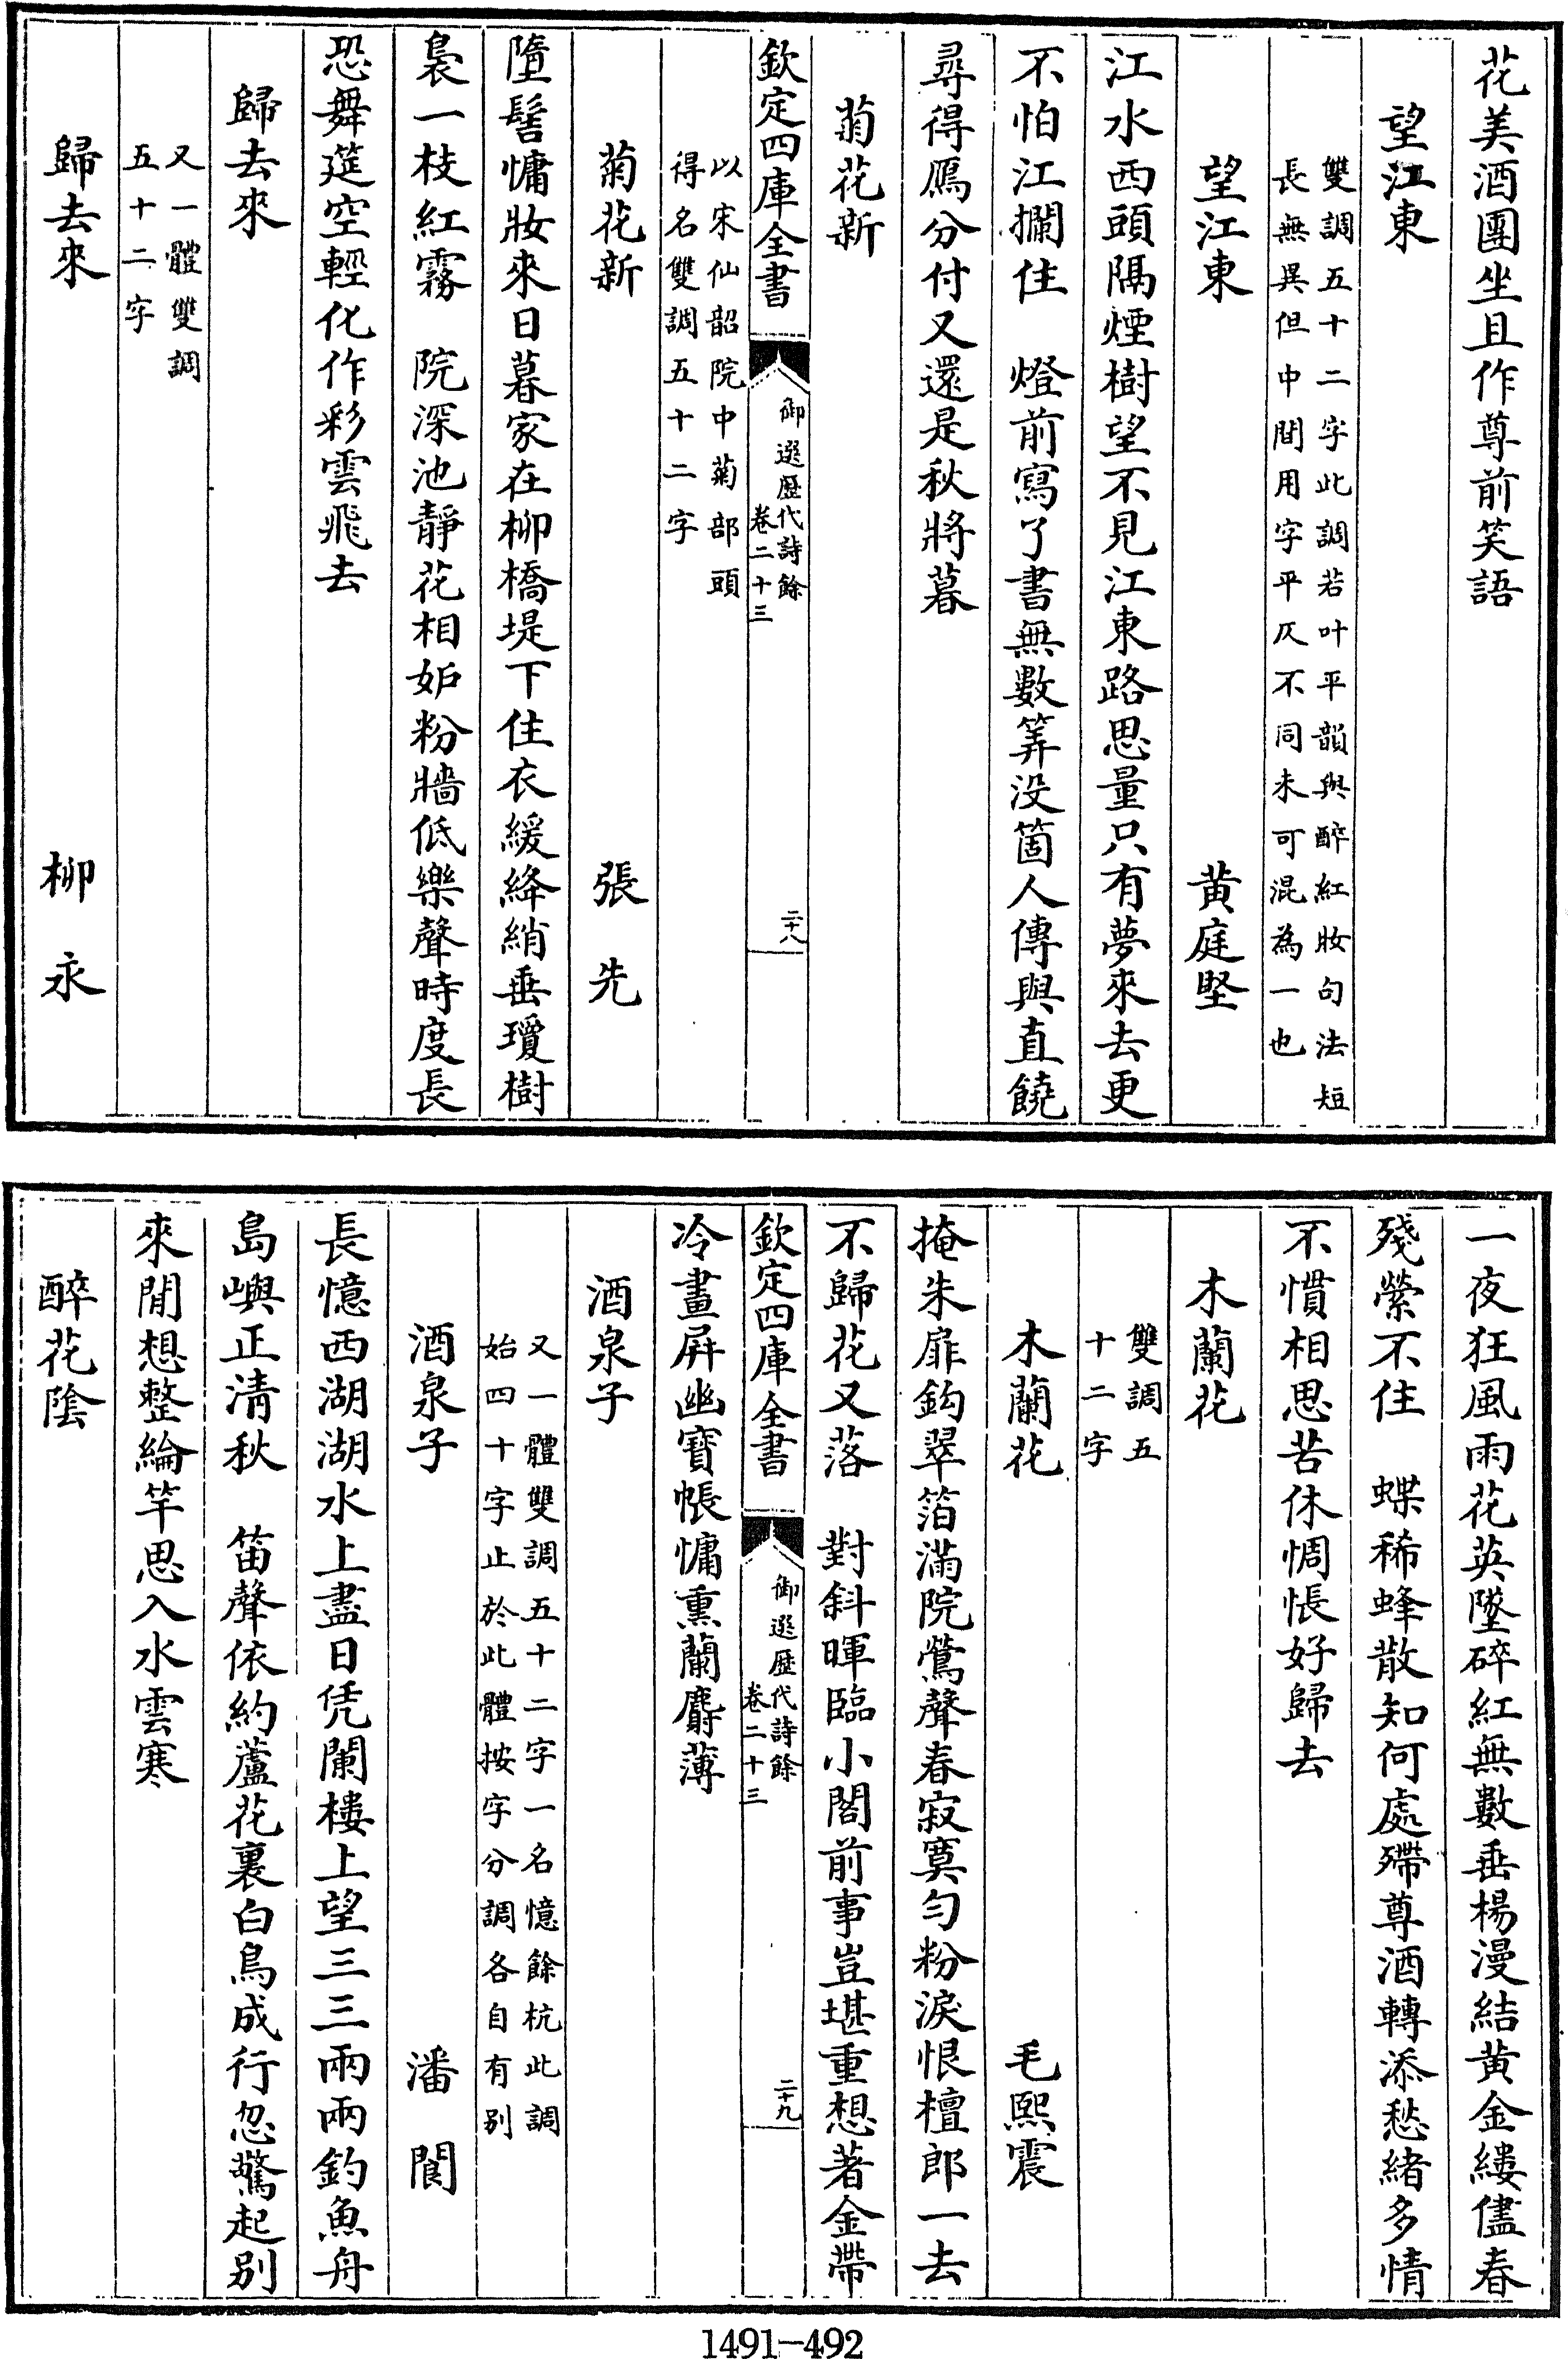 花美酒團坐且作尊前笑語
望江東
雙調五十二字此調若叶平韻與醉紅妝句法短
長無異但中間用字平仄不同未可混為一也
望江東　黄庭堅
江水西頭隔煙樹望不見江東路思量只有夢來去更
不怕江攔住　燈前寫了書無數筭没箇人傳與直饒
尋得鴈分付又還是秋將暮
菊花新
欽定四庫全書　御選歷代詩餘　卷二十三　二十八
以宋仙韶院中菊部頭
得名雙調五十二字
菊花新　張先
墮髻慵妝來日暮家在柳橋堤下住衣緩絳綃垂瓊樹
裊一枝紅霧　院深池靜花相妒粉牆低樂聲時度長
恐舞筵空輕化作彩雲飛去
歸去來
又一體雙調
五十二字
歸去來　柳永
一夜狂風雨花英墜碎紅無數垂楊漫結黄金縷儘春
殘縈不住　蝶稀蜂散知何處殢尊酒轉添愁緒多情
不慣相思苦休惆悵好歸去
木蘭花
雙調五
十二字
木蘭花　毛熙震
掩朱扉鈎翠箔滿院鶯聲春寂寞匀粉淚恨檀郎一去
不歸花又落　對斜暉臨小閣前事豈堪重想著金帶
欽定四庫全書　御選歷代詩餘　卷二十三　二十九
冷畫屏幽寶帳慵熏蘭麝薄
酒泉子
又一體雙調五十二字一名憶餘杭此調
始四十字止於此體按字分調各自有别
酒泉子　潘閬
長憶西湖湖水上盡日凭闌樓上望三三兩兩釣魚舟
島嶼正清秋　笛聲依約蘆花裏白鳥成行忽驚起别
來閒想整綸竿思入水雲寒
醉花陰
1491-492